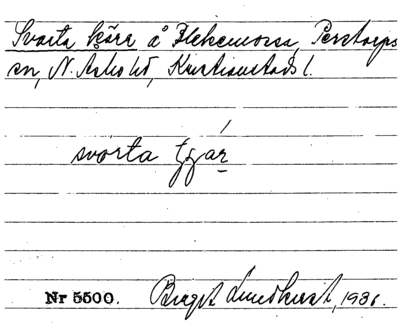 Svarta kjära å Flekemossa, Perstorps
sn, N. Åsbo hd, Kristianstads l.
svarta
Nr 5500. Birgit Lundkvist, 1936.